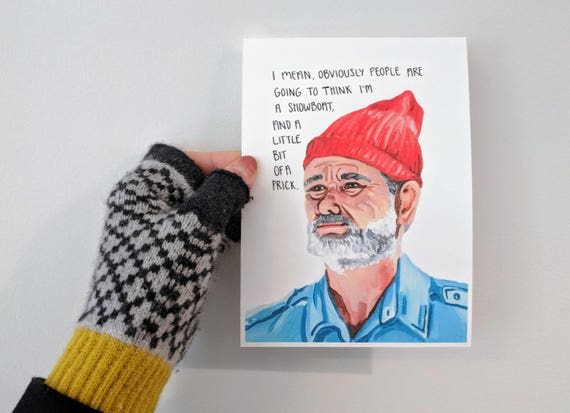 I MEAN, OBVIOUSLY PEOPLE ARE
GOING TO THINK I'M
A SHOWBOAT,
AND A
LITTLE
BIT
OF A
PRICK.